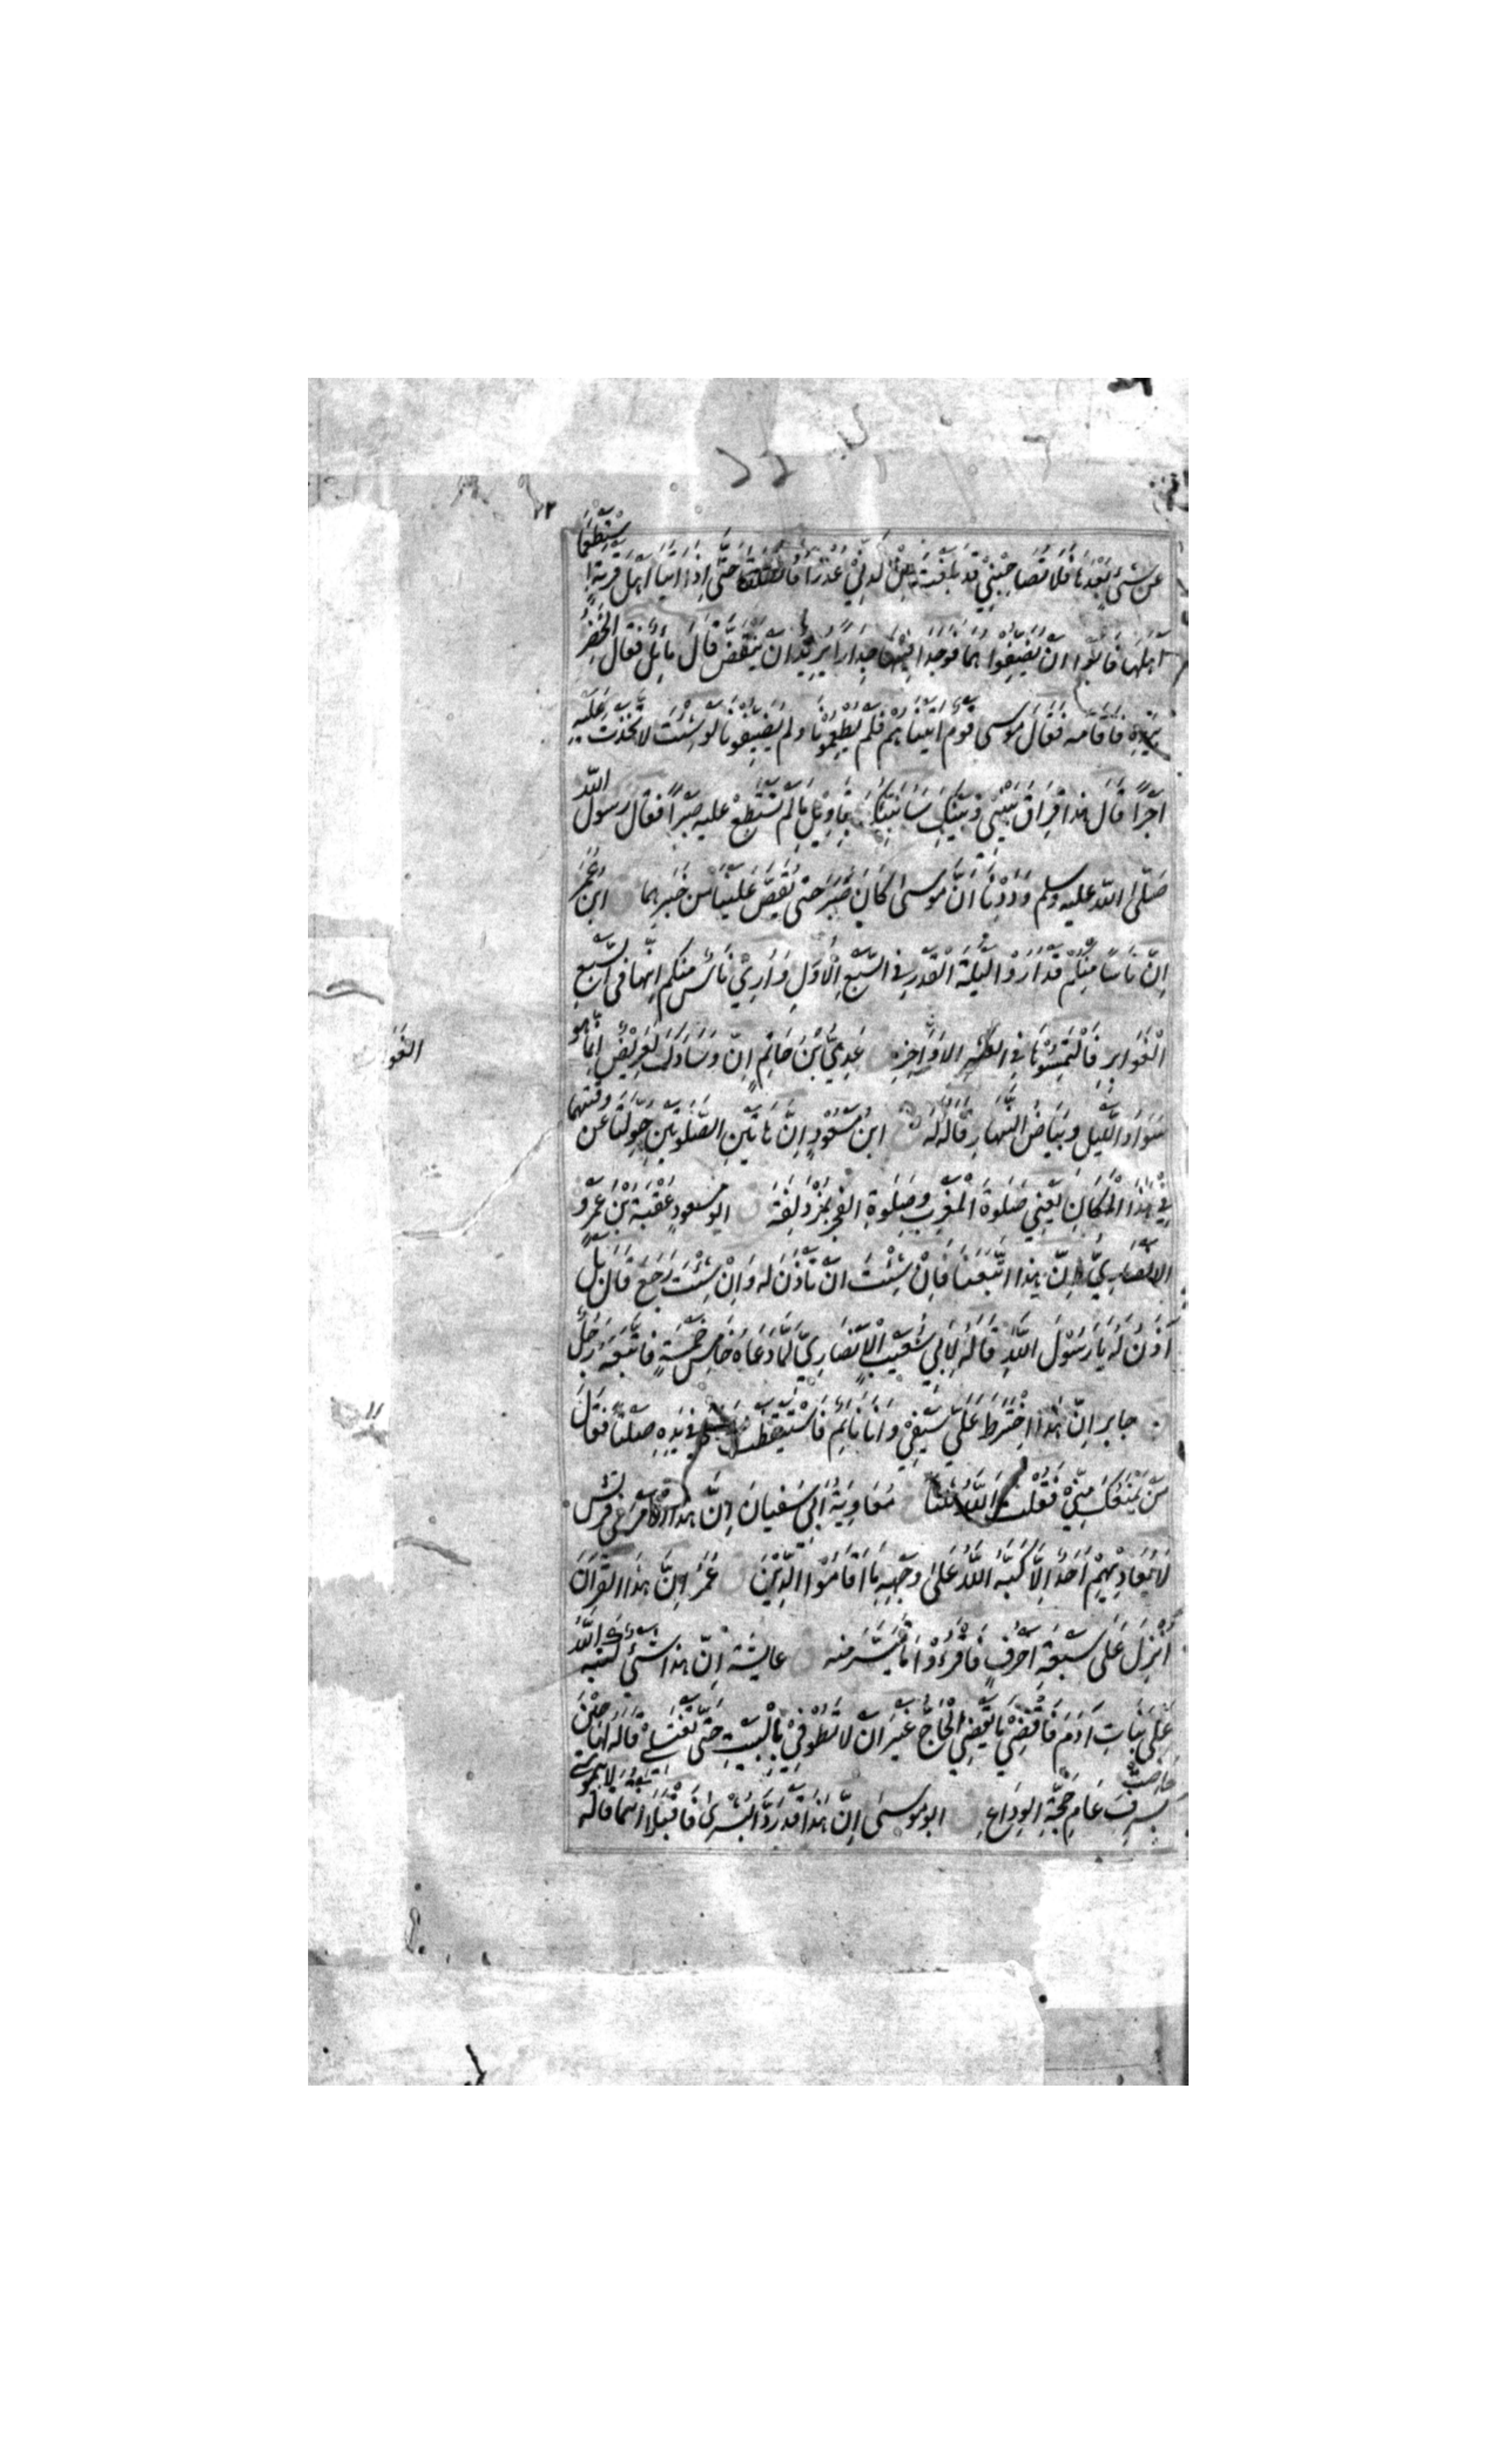 عَنْ شَيْءٍ بَعْدَهَا فَلَا تُصَاحِبْنِي قَدْ بَلَغْتَ مِنْ لَدُنِّي عُذْرًا فَانْطَلَقَا حَتَّى إِذَا أَتَيَا أَهْلَ قَرْيَةٍ اسْتَطْعَمَا
أَهْلَهَا فَأَبَوْا أَنْ يُضَيِّفُوهُمَا فَوَجَدَا فِيْهَا جِدَارًا يُرِيْدُ أَنْ يَنْقَضَّ قَالَ مَائِلٌ فَقَالَ الْخَضِرُ
بِيَدِهِ فَأَقَامَه فَقَالَ مُوسى قَوْمٌ أَتَيْنَاهُمْ فَلَمْ يُطْعِمُوْنَا ولم يُضَيِّفُوْنَا لَوْ شِئْتَ لَاتَّخَذْتَ عَلَيْهِ
أَجْرًا قَالَ هذا فِرَاقُ بَيْنِيْ وَبَيْنِكَ سَأُنَبِّئُكَ بِتَأوِيْلِ مَا لَمْ تَسْتَطِعْ عليه صَبْرًا فقال رسول الله
صَلَّى الله عليه وسلم وَدِدْنَا أَنَّ مُوسى كَانَ صَبَرَ حتى يُقَصَّ عَلَيْنَا مِنْ خَبَرِهِمَا ابن عُمَرَ
إِنَّ نَاسًا مِنْكُمْ قَدْ أُرُوْا لَيْلَةَ الْقَدْرِ فِي السَّبْعِ الْأُوَلِ وَأُرِيَ نَاسٌ منكم إِنَّهَا في السَّبْعِ
الْغَوَابِرِ فَالْتَمِسُوْهَا فِي العَشْرِ الأَوَاخِرِ عَدِيُّ بْنُ حَاتِمٍ إِنَّ وِسَادَكَ لَعَرِيْضٌ إِنَّمَا هو
الغَوَ
سَوَادُ اللَّيْلِ وبَيَاضُ النَّهَارِ قَالَهُ لَهُ ابن مَسْعُوْدٍ إِنَّ هَاتَيْنِ الصَّلوتَيْنِ حُوِّلَتَا عَنْ وقتهما
فِيْ هذَا الْمَكَانِ يَعْنِي صَلوةَ الْمَغْرِبِ وصَلوةَ الفَجْرِ بِمُزْدَلِفَةَ ق ابو مسعودٍ عُقْبَةُ بْنُ عَمْرٍو
الأَنْصَارِيُّ إِنَّ هذا اتَّبَعَنَا فَإِنْ شِئْتَ أَنْ تَأْذَنَ له وَإِنْ شِئْتَ رَجَعَ قَالَ بَلْ
آذَنُ لَهُ يَا رَسُوْلَ اللَّهِ قَالَهُ لِأَبِي شُعَيْبٍ الْأَنْصَارِيِّ لَمَّا دَعَاهُ خَامِسَ خَمْسَةٍ فَاتَّبَعَهُ رَجُلٌ
جابر إِنَّ هَذَا اخْتَرَطَ عَلَيَّ سَيْفِيْ وَأَنَا نَائِمٌ فَاسْتَيْقَظْتُ وَهُوَ فِي يَدِهِ صَلْتًا فَقَالَ
مَنْ يَمْنَعُكَ مِنِّيْ فَقُلْتُ اللَّهُ ثَلَاثًا مُعَاوِيَةُ ابْن أَبِي سُفْيَانَ إِنَّ هذا الْأَمْرَ فِي قُرَيْش
لَا يُعَادِيْهِمْ أَحَدٌ إِلَّا كَبَّهُ اللَّهُ عَلَى وَجْهِهِ مَا أَقَامُوْا الدِّيْنَ ق عُمَرُ إِنَّ هذَا الْقُرآنَ
أُنْزِلَ عَلَى سَبْعَةِ أَحْرُفٍ فَاقْرَءُوْا مَا تَيَسَّرَ منه ق عايشة إِنَّ هذا شَيْءٌ كتبه اللَّهُ
عَلَى بَنَاتِ آدَمَ فَاقْضِيْ مَا يَقْضِي الْحَاجُّ غَيْرَ أَنْ لَا تَطُوْفِيْ بِالْبَيْتِ حَتَّى تَغْتَسِلِيْ قَالَهُ لها حِيْنَ حاضت
بِسَرِفَ عَامَ حَجَّةِ الوِدَاعِ ابو موسى إِنَّ هَذَا قَدْ رَدَّ الْبُشْرَى فَاقْبَلَا أَنْتُمَا قاله